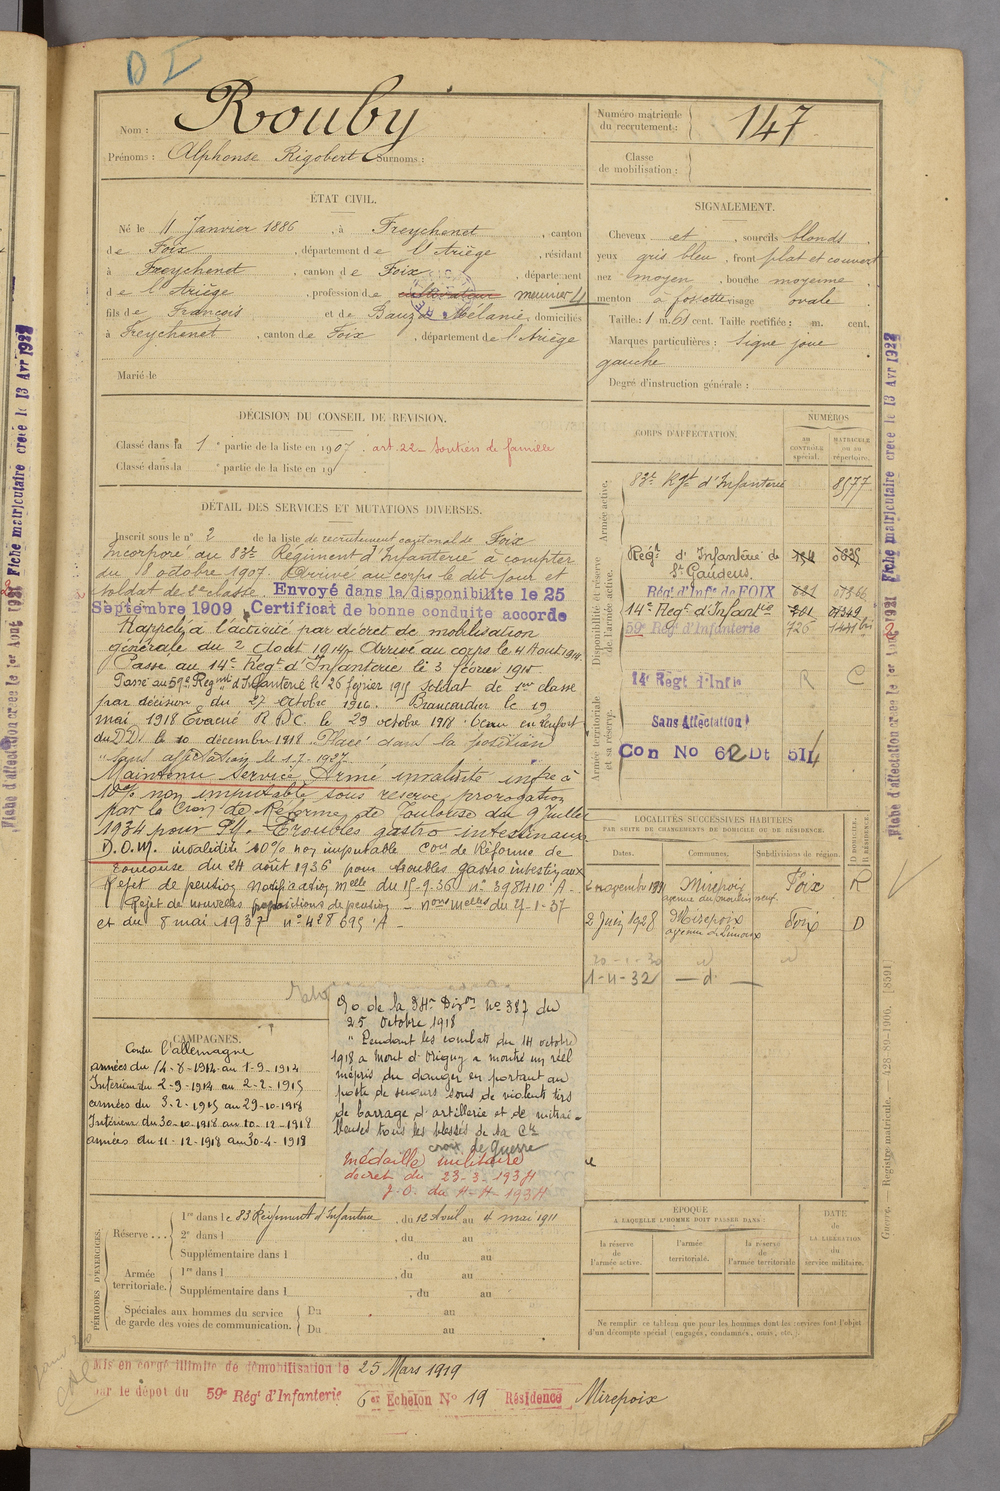 D I
Nom : Rouby
Prénoms : Alphonse Rigobert Surnoms :
Numéro matricule
du recrutement : 147
Classe
de mobilisation :
ÉTAT CIVIL.
Né le 11 Janvier 1886, à Freychenet, canton
de Foix, département de l'Ariège, résidant
à Freychenet, canton de Foix, département
de l'Ariège, profession de cultivateur meunier 4
fils de François et de Bauzo Mélanie, domiciliés
à Freychenet, canton de Foix, département de l'Ariège
Marié le
SIGNALEMENT.
Cheveux et, sourcils blonds
yeux gris bleu, front plat et couvert
nez moyen, bouche moyenne
menton à fossette visage ovale
Taille : 1 m. 61 cent. Taille rectifiée : m. cent.
Marques particulières : Signe joue
gauche
Degré d'instruction générale :
DÉCISION DU CONSEIL DE REVISION.
Classé dans la 1e partie de la liste en 1907 art. 22 - Soutien de famille
Classé dans la e partie de la liste en 19
DÉTAIL DES SERVICES ET MUTATIONS DIVERSES.
Inscrit sous le n° 2 de la liste de recrutement cantonal de Foix
Incorporé au 83e Régiment d'Infanterie à compter
du 8 octobre 1907. Arrivé au corps le dit jour et
soldat de 2e classe. Envoyé dans la disponibilité le 25
Septembre 1909. Certificat de bonne conduite accordé
Rappelé à l'activité par décret de mobilisation
générale du 2 Août 1914. Arrivé au corps le 4 Août 1914.
Passé au 14e Regt d'Infanterie le 3 février 1915
Passé au 59e Regmt d'Infanterie le 26 février 1915 Soldat de 1ere classe
par décision du 27 octobre 1916. Brancardier le 19
mai 1918 Evacué R.D.C. le 29 octobre 1918. Venu en renfort
du DD. le 10 décembre 1918. Placé dans la position
"sans affectation le 1-7-1927
Maintenu Service Armé invalidité infre à
10% non imputable sous réserve prorogation
par la Cion de Réforme de Toulouse du 9 Juillet
1934 pour Troubles gastro intestinaux
D.O.M. invalidité 10% non imputable Con de Réforme de
Toulouse du 24 août 1936 pour troubles gastro intestinaux
Rejet de pension Notification Melle du 15-9-36 n° 398410 A -
Rejet de nouvelles propositions de pension - du 27-1-37
et du 8 mai 1937 n° 428695 A -
CORPS D'AFFECTATION.
NUMÉROS
AU
CONTRÔLE
spécial.
MATRICULE
OU AU
répertoire.
Armée active.
83e Rgt d'Infanterie 8577
Disponibilité et réserve
de l'armée active.
Régt d'Infanterie de
St Gaudens.
Régt d'Infie de FOIX 681
14e Regt d'Infantrie
59e Régt d'Infanterie 726
Armée territoriale
et sa réserve.
14e Régt d'Infie R C
Sans Affectation
Con No 62 Dt 511
LOCALITÉS SUCCESSIVES HABITÉES
PAR SUITE DE CHANGEMENTS DE DOMICILE OU DE RÉSIDENCE.
Dates. Communes. Subdivisions de région.
D DOMICILE.
R RÉSIDENCE.
Mirepoix Foix R
2 Juin 1928 Mirepoix Foix D
1-11-32 — d° —
CAMPAGNES.
Contre l'allemagne
armées du 14-8-1914 au 1-9-1914
Intérieur du 2-9-1914 au 2-2-1915
armées du 3-2-1915 au 29-10-1918
Intérieur du 30-10-1918 au 10-12-1918
armées du 11-12-1918 au 30-4-1919
O de la 34e Dion n° 387 du
25 octobre 1918
" Pendant les combats du 14 octobre
1918 à Mont d'Origny a montré un réel
mépris du danger en portant au
poste de secours sous de violents tirs
de barrage d'artillerie et de mitrail-
leuses tous les blessés de sa Cie
croix de guerre
Médaille militaire
décret du 23-3-1934
J.O. du 4-4-1934
PÉRIODES D'EXERCICES.
Réserve ... 1re dans le 83 Régiment d'Infanterie, du 12 Avril au 4 mai 1911
2e dans l, du au
Supplémentaire dans l, du au
Armée
territoriale. 1re dans l, du au
Supplémentaire dans l, du au
Spéciales aux hommes du service
de garde des voies de communication. Du au
Du au
ÉPOQUE
À LAQUELLE L'HOMME DOIT PASSER DANS :
la réserve
de
l'armée active.
l'armée
territoriale.
la réserve
de
l'armée territoriale
DATE
de
LA LIBÉRATION
du
service militaire.
Ne remplir ce tableau que pour les hommes dont les services font l'objet
d'un décompte spécial (engagés, condamnés, omis, etc.)
Mis en congé illimité de démobilisation le 25 Mars 1919
par le dépôt du 59e Régt d'Infanterie 6er Echelon N° 19 Résidence Mirepoix
Fiche matriculaire créée le 13 Avr 1922
Fiche d'affectation créée le 1er Août 1921
Guerre. — Registre matricule. — A28-89-1906. [8591]